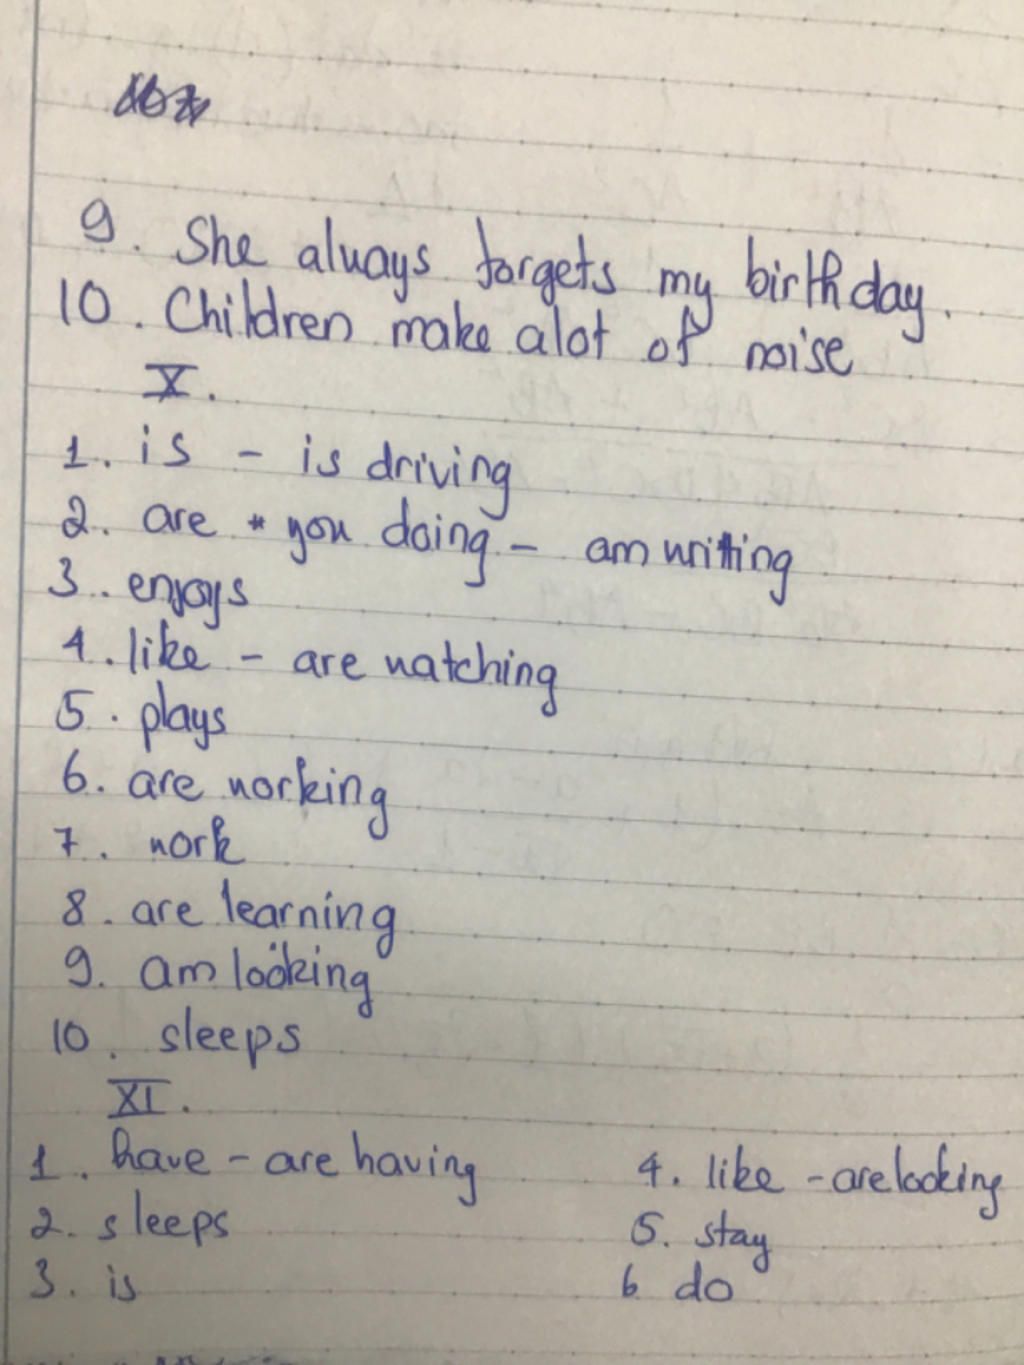 9. She always forgets my birthday.
10. Children make alot of noise
X.
1. is - is driving
2. are you doing - am writing
3. enjoys
4. like - are watching
5. plays
6. are working
7. work
8. are learning
9. am looking
10. sleeps
XI.
1. have - are having
2. sleeps
3. is
4. like - are looking
5. stay
6 do